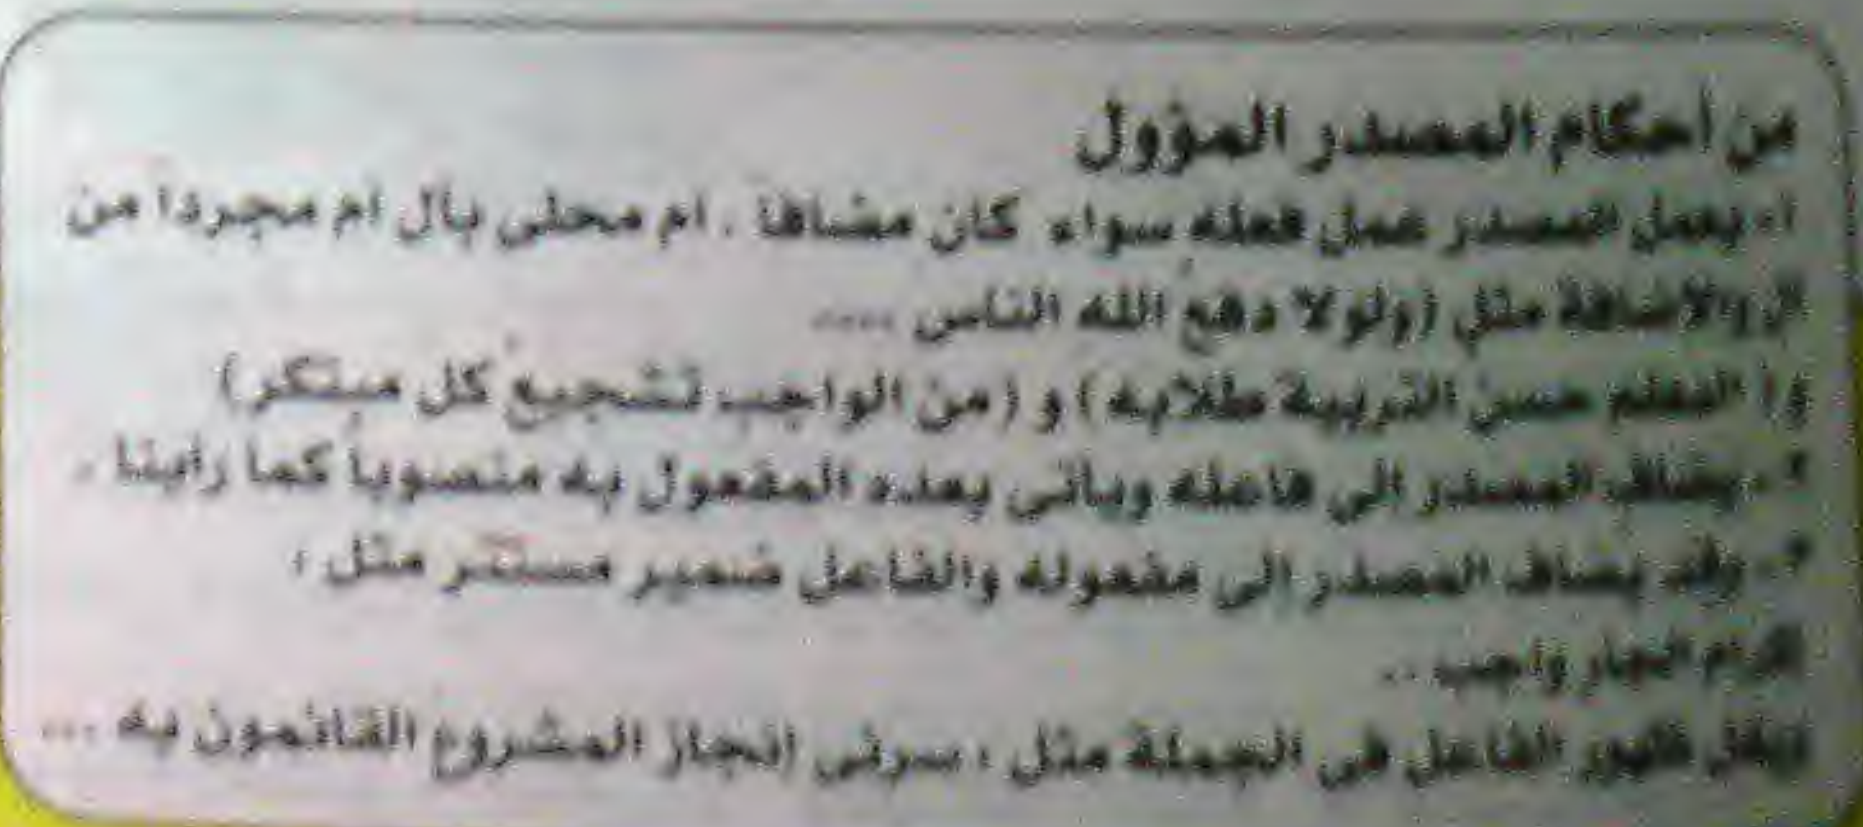 من أحكام المصدر المؤول
١- يعمل المصدر عمل فعله سواء كان مضافاً ، أم محلى بأل أم مجرداً من
ال والأضافة مثل (ولولا دفع الله الناس ....
و( المعلم حسن التربية طلابه ) و ( من الواجب تشجيع كل مبتكر )
٢- يضاف المصدر إلى فاعله ويأتي بعده المفعول به منصوباً كما رأينا .
٣- وقد يضاف المصدر إلى مفعوله والفاعل ضمير مستتر مثل :
إكرام الجار واجب ..
ظهور الفاعل في الجملة مثل : سرني إنجاز المشروع القائمون به ...